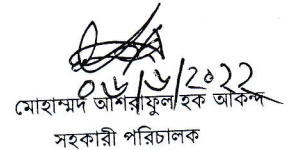 ০৬/৬/২০২২
মোহাম্মদ আশরাফুল হক আকন্দ
সহকারী পরিচালক